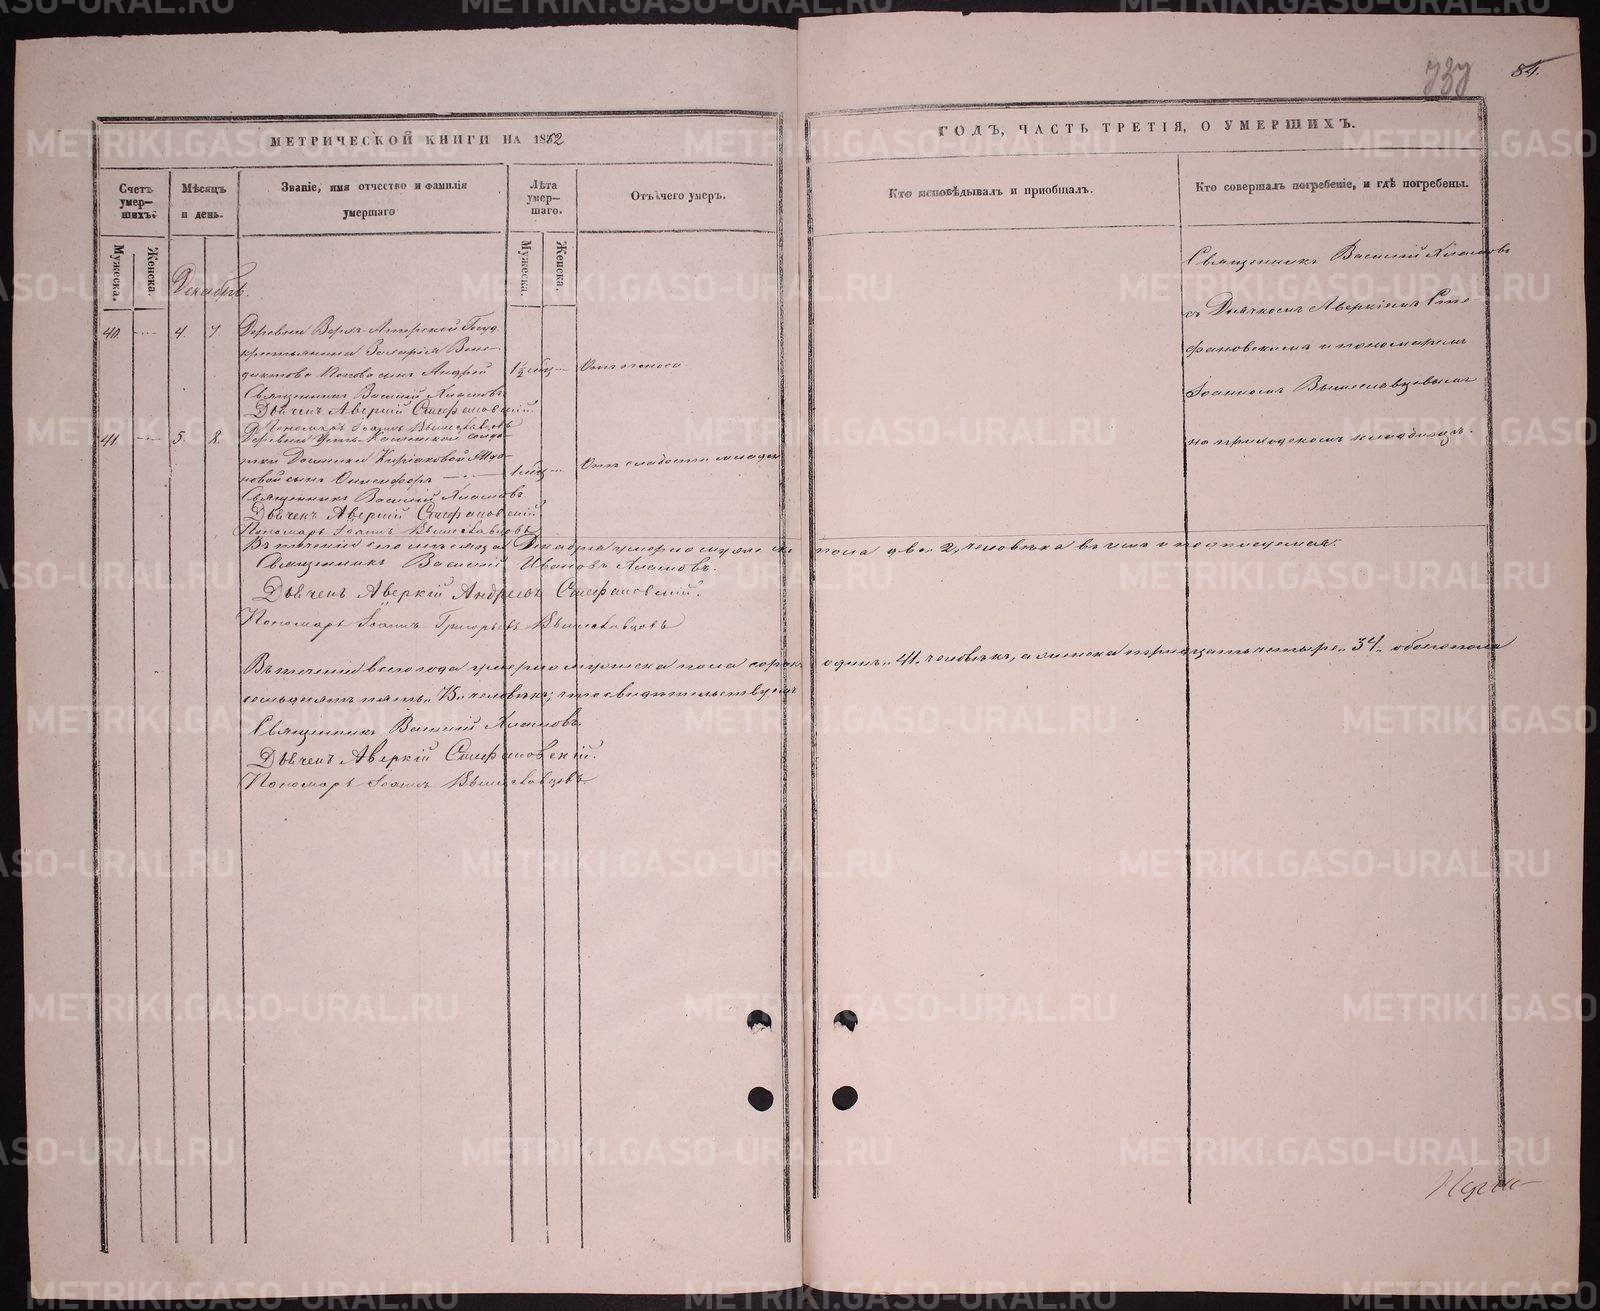 737
84.
МЕТРИЧЕСКОЙ КНИГИ НА 1862
ГОДЪ, ЧАСТЬ ТРЕТІЯ, О УМЕРШИХЪ.
Счетъ умер-шихъ.
Мѣсяцъ и день.
Званіе, имя отчество и фамилія умершаго
Лѣта умер-шаго.
Отъ чего умеръ.
Кто исповѣдывалъ и пріобщалъ.
Кто совершалъ погребеніе, и гдѣ погребены.
Мужеска.
Женска.
Мужеска.
Женска.
Декабрь
40. 4. 7. Деревни Верхъ- Госуд.
крестьянина Захарія Вене-
диктова Попова сынъ Андрей
1½ мѣс. Отъ поноса
Священникъ Василій
Дьячекъ Аверкій Стефановскій.
Пономарь Іоаннъ Вышеславцовъ
41. 5. Деревни Усть- солдат-
новой сынъ Онисифоръ
1 мѣс. Отъ слабости младен.
Священникъ Василій
Дьячекъ Аверкій Стефановскій
Пономарь Іоаннъ Вышеславцовъ
Священникъ Василій
съ Дьячкомъ Аверкіемъ Сте-
фановскимъ и пономаремъ
Іоанномъ Вышеславцовымъ
на приходскомъ кладбищѣ.
Въ теченіи сего мѣсяца Декабря умерло мужеска пола два 2, человѣка въ чемъ и подписуемся:
Священникъ Василій Ивановъ
Дьячекъ Аверкій Андреевъ Стефановскій.
Пономарь Іоаннъ Григорьевъ Вышеславцовъ
Въ теченіи всего года умерло мужеска пола сорокъ одинъ „41„ человѣкъ, а женска тридцать четыре „34„ обоего пола
семьдесятъ пять „75„ человѣкъ; что свидѣтельствуемъ
Священникъ Василій
Дьячекъ Аверкій Стефановскій.
Пономарь Іоаннъ Вышеславцовъ
METRIKI.GASO-URAL.RU